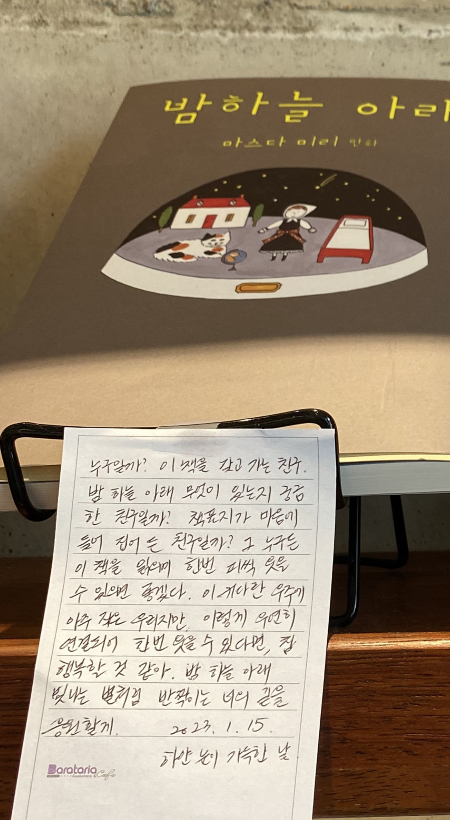 밤하늘 아래
마스다 미리 만화
누구일까? 이 책을 갖고 가는 친구.
밤 하늘 아래 무엇이 있는지 궁금
한 친구일까? 책표지가 마음에
들어 집어 든 친구일까? 그 누구든
이 책을 읽으며 한번 피식 웃을
수 있으면 좋겠다. 이 커다란 우주에
아주 작은 우리지만, 이렇게 우연히
연결되어 한번 웃을 수 있다면, 참
행복할 것 같아. 밤 하늘 아래
빛나는 별처럼 반짝이는 너의 길을
응원할게. 2023. 1. 15.
하얀 눈이 가득한 날.
Barataria Cafe